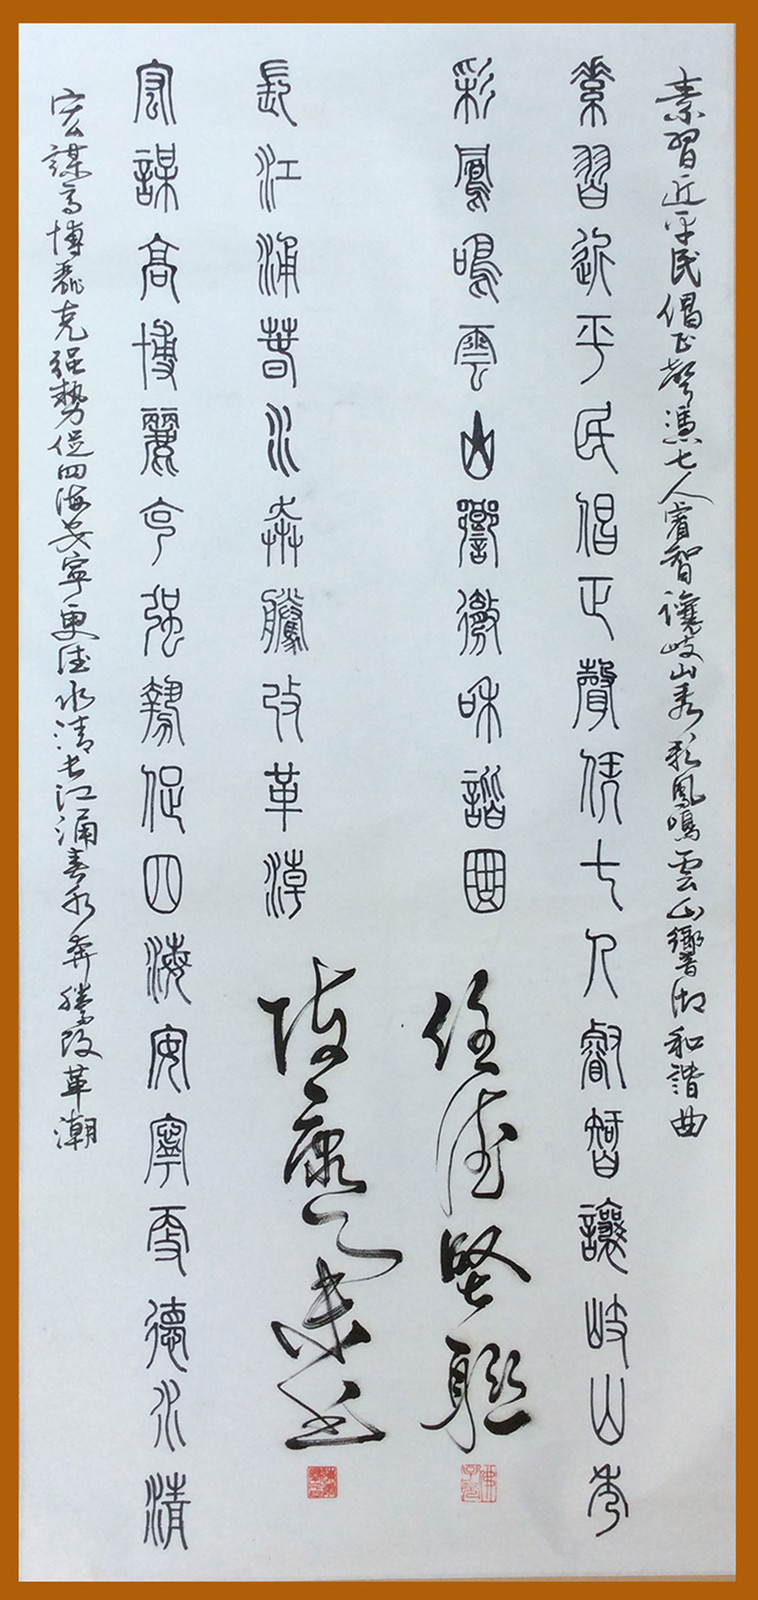 素習近平民倡正聲憑七人睿智讓岐山秀彩鳳鳴雲山響和諧曲
素習近平民倡正聲凭七人叡智讓岐山秀
彩鳳鳴雲山響徹和諧曲
任德堅聯
長江涌春水奔騰改革潮
宏謀高博麗克強勢促四海安寧更德水清
宏謀高博麗克强勢促四海安寧更德水清長江涌春水奔騰改革潮